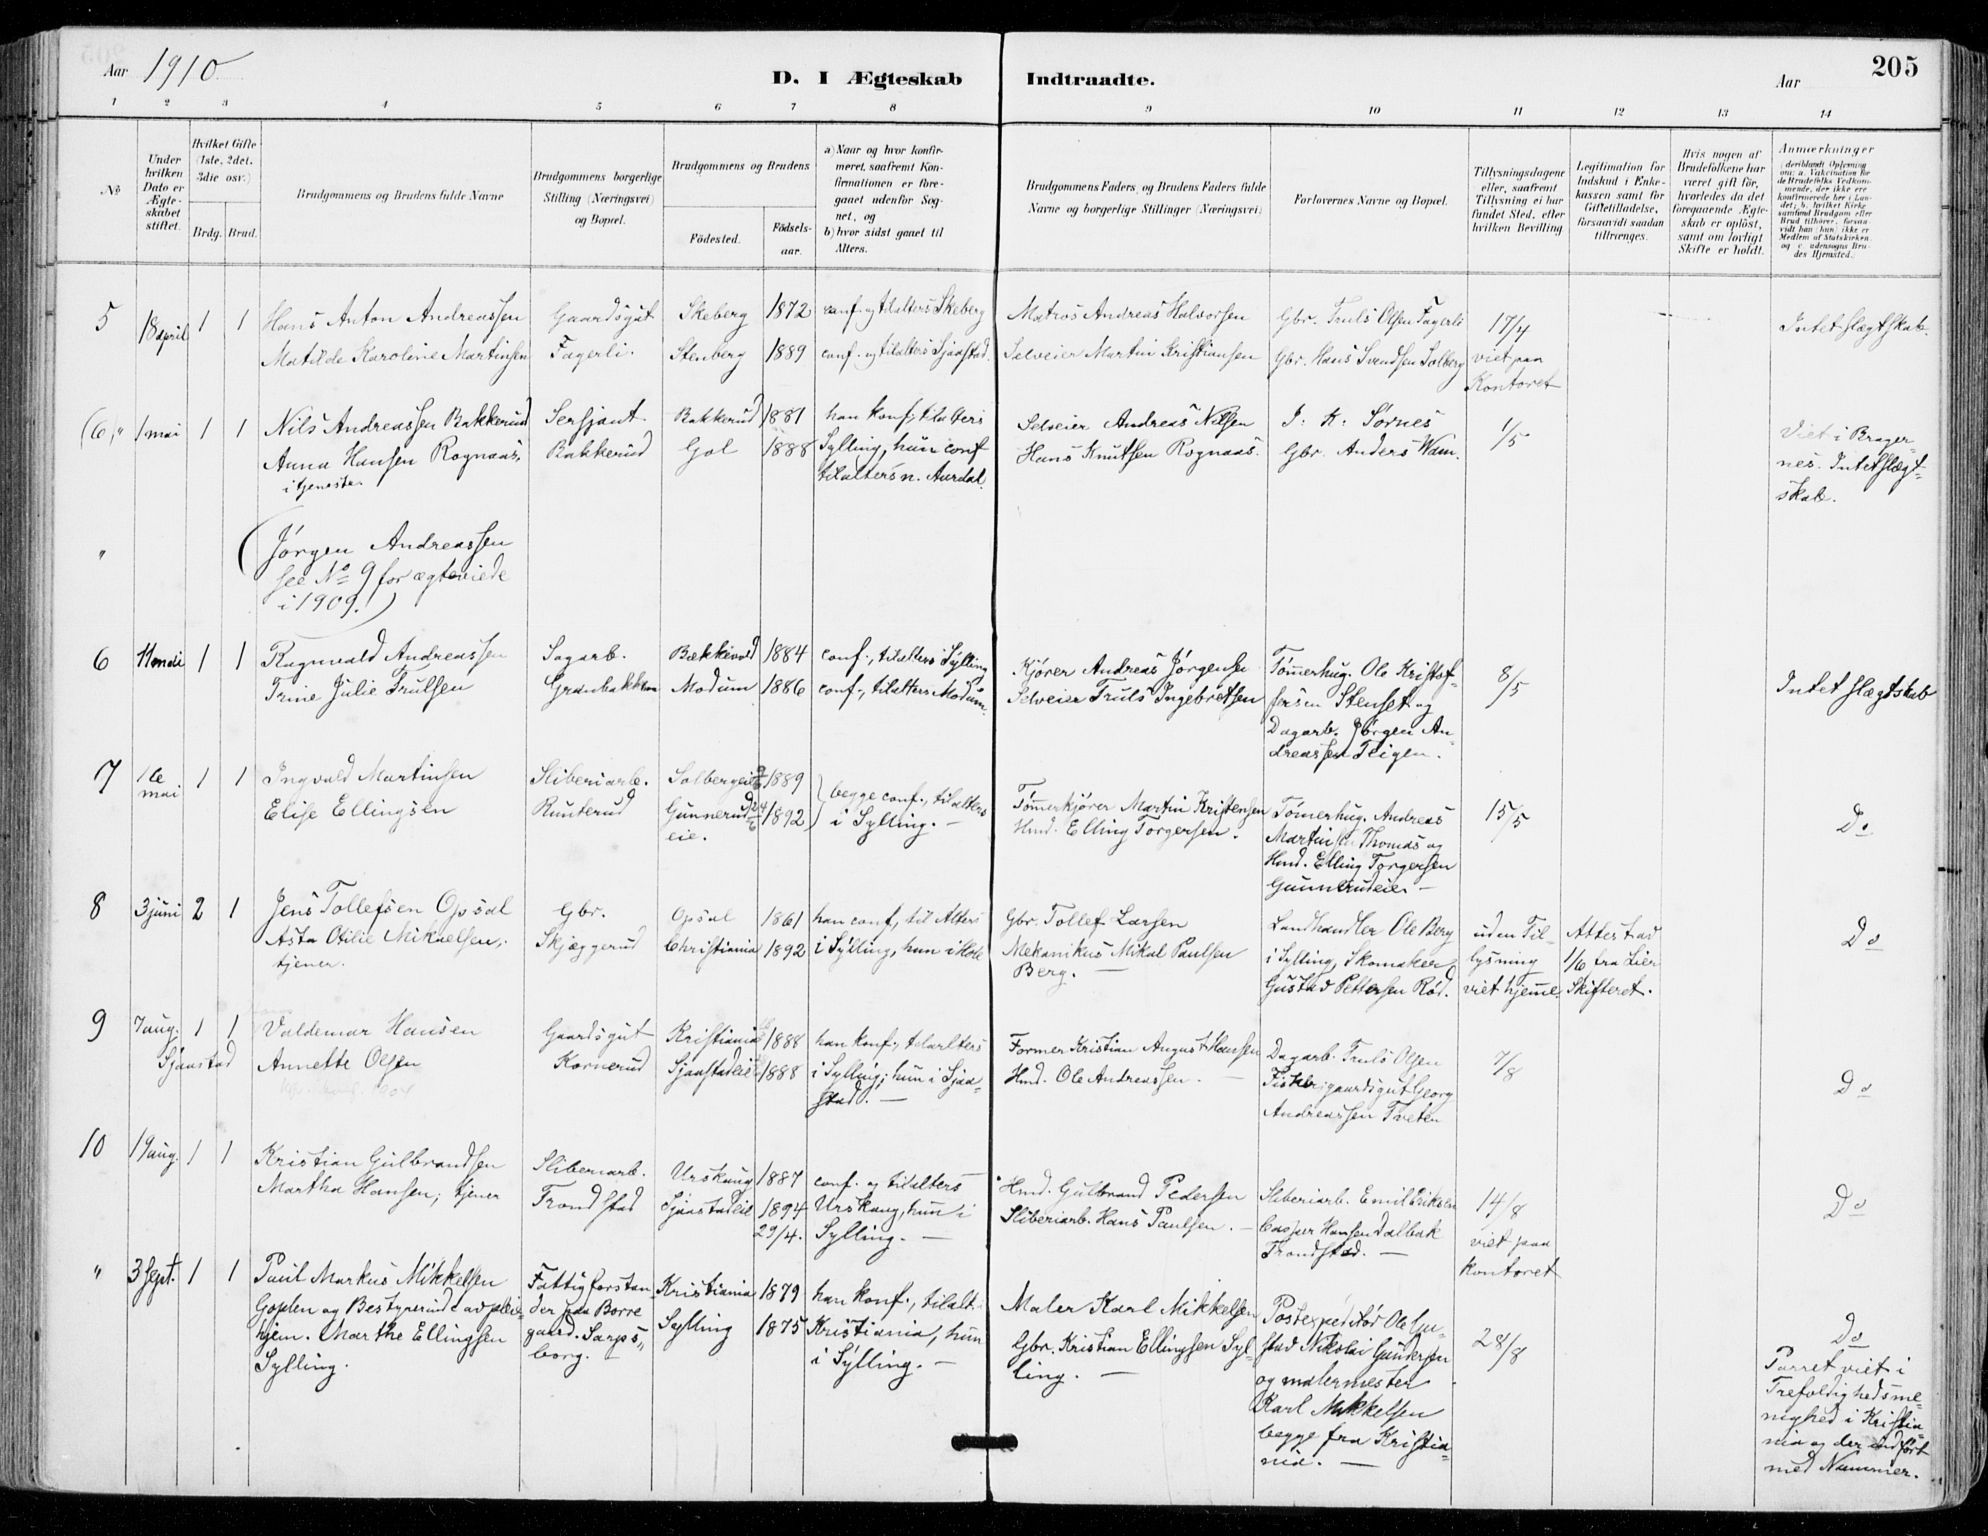 Aar 1910
D. I Ægteskab Indtraadte.
Aar
205
1 2 3 4 5 6 7 8 9 10 11 12 13 14
No
Under hvilken Dato er Ægteskabet stiftet.
Hvilket Gifte (1ste, 2det, 3die osv.)
Brdg. Brud.
Brudgommens og Brudens fulde Navne
Brudgommens borgerlige Stilling (Næringsvei) og Bopæl.
Brudgommens og Brudens
Fødested.
Fødselsaar.
a) Naar og hvor konfirmeret, saafremt Konfirmationen er foregaaet udenfor Sognet, og
b) hvor sidst gaaet til Alters.
Brudgommens Faders, og Brudens Faders fulde Navne og borgerlige Stillinger (Næringsvei)
Forlovernes Navne og Bopæl.
Tillysningsdagene eller, saafremt Tillysning ei har fundet Sted, efter hvilken Bevilling
Legitimation for Indskud i Enkekassen samt for Giftetilladelse, forsaavidt saadan tiltrænges.
Hvis nogen af Brudefolkene har været gift før, hvorledes da det foregaaende Ægteskab er opløst, samt om lovligt Skifte er holdt.
Anmærkninger (deriblandt Oplysning om: a. Vakcination for de Brudefolks Vedkommende, der ikke ere konfirmerede her i Landet; b. hvilket Kirkesamfund Brudgom eller Brud tilhører, forsaavidt han (hun) ikke er Medlem af Statskirken, og c. udensogns Brudes Hjemsted.)
5 18 april 1 1
Hans Anton Andreassen
Matilde Karoline Martinsen
Gaardsgut
Fagerli.
Skeberg 1872
Stenberg 1889
conf. og tilalters Skeberg
conf. og tilalters Sjaastad.
Matros Andreas Halvorsen
Selveier Martin Kristiansen
Gbr. Truls Olsen Fagerli
Gbr. Hans Svendsen Solberg
17/4
viet paa
Kontoret
Intet slægtskab.
(6) " 1 mai 1 1
Nils Andreassen Bakkerud
Anna Hansen Rognaas,
i tjeneste.
Sersjant.
Bakkerud
Bakkerud 1881
Gol 1888
han konf., tilalters
Sylling, hun conf
tilalters n. Aurdal.
Selveier Andreas Nilsen
Hans Knutsen Rognaas.
J. K. Sørnes
Gbr. Anders Wam.
1/5
Viet i Brager-
nes. Intet slægt-
skab.
"
(Jørgen Andreassen
see No 9 for ægteviede
i 1909.)
6 11 mai 1 1
Ragnvald Andreassen
Trine Julie Trulsen
Sagarb.
Grønbakken
Bækkevold 1884
Modum 1886
conf., tilalters i Sylling
conf., tilalters Modum.
Kjører Andreas Jørgensen
Selveier Truls Ingebretsen
Tømerhug. Ole Kristof-
fersen Stenset og
Dagarb. Jørgen An-
dreassen Teigen.
8/5
Intet slægtskab
7 16 mai 1 1
Ingvald Martinsen
Elise Ellingsen
Sliberiarb.
Runterud
Solbergeie 1889
Gunnerud
eie. 1892
begge conf., tilalters
i Sylling. -
Tømerkjører Martin Kristensen
Hmd. Elling Torgersen.
Tømerhug. Andreas
Martinsen Thomas og
Hmd. Elling Torgersen
Gunnerudeie. -
15/5
Do
8 3 juni 2 1
Jens Tollefsen Opsal
Asta Otilie Mikaelsen,
tjener.
Gbr.
Skjæggerud
Opsal 1861
Christiania 1892
han conf., til Alters
i Sylling, hun i Hole
Gbr. Tollef Larsen
Mekanikus Mikal Paulsen
Berg. -
Landhandler Ole Berg
i Sylling, Skomaker
Gustav Pettersen Rød.
uden Til-
lysning
viet hjemme.
Attest av
1/6 fra Lier
Skifteret.
Do
9 7 aug. 1 1
Sjaastad
Valdemar Hansen
Annette Olsen
Gaardsgut
Kornerud
Kristiania 1888
Sjaastadeie 1888
han konf., tilalters
i Sylling; hun i Sjaa-
stad. -
Former Kristian August Hansen
Hmd. Ole Andreassen. -
Dagarb. Truls Olsen
Fisker gaardsgut Georg
Andreassen Tveten
7/8
Do
10 19 aug. 1 1
Kristian Gulbrandsen
Martha Hansen, tjener
Sliberiarb.
Trondstad
Urskaug 1887
Sjaastadeie 1894
29/4.
conf. og tilalters
Urskaug, hun i
Sylling. -
Hmd. Gulbrand Pedersen
Sliberiarb. Hans Paulsen. -
Sliberiarb. Emil Eriksen
Casper Hansen Dalbak
Trondstad. -
14/8
viet paa
kontoret
Do
" 3 Sept. 1 1
Paul Markus Mikkelsen
Goplen og Bestyrerinde av pleie-
hjem. Marthe Ellingsen
Sylling.
Fattigforstan
der paa Borre
gaard. Sarps-
borg. -
Kristiania 1879
Sylling 1875
han konf., tilalt.
Kristiania, hun
i Sylling. -
Maler Karl Mikkelsen
Gbr. Kristian Ellingsen Syl-
ling. -
Postexpeditør Ole Gu-
stav Nikolai Gundersen
og malermester
Karl Mikkelsen
begge fra Kristia-
nia. -
28/8
Do
Parret viet i
Trefoldighedsme-
nighed i Kristia-
nia og der indført
med Nummer.